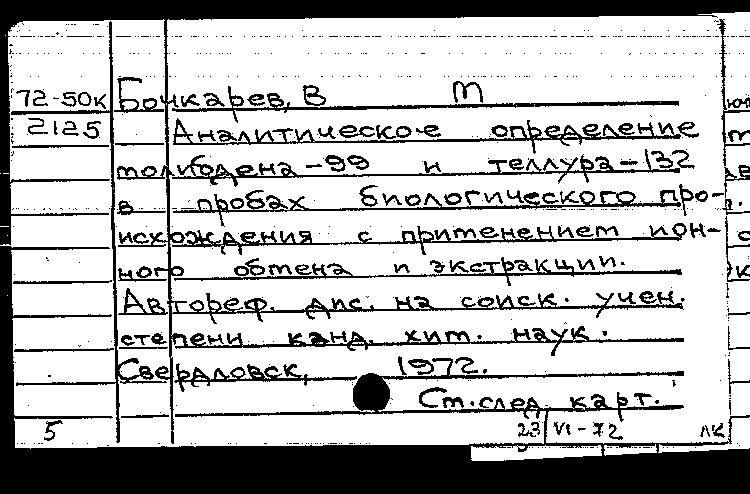 72-50к Бочкарев, В М
2125 Аналитическое определение
молибдена-99 и теллура-132
в пробах биологического про-
исхождения с применением ион-
ного обмена и экстракции.
Автореф. дис. на соиск. учен.
степени канд. хим. наук.
Свердловск, 1972.
См. след. карт.
5 23/VI-72 ЛК